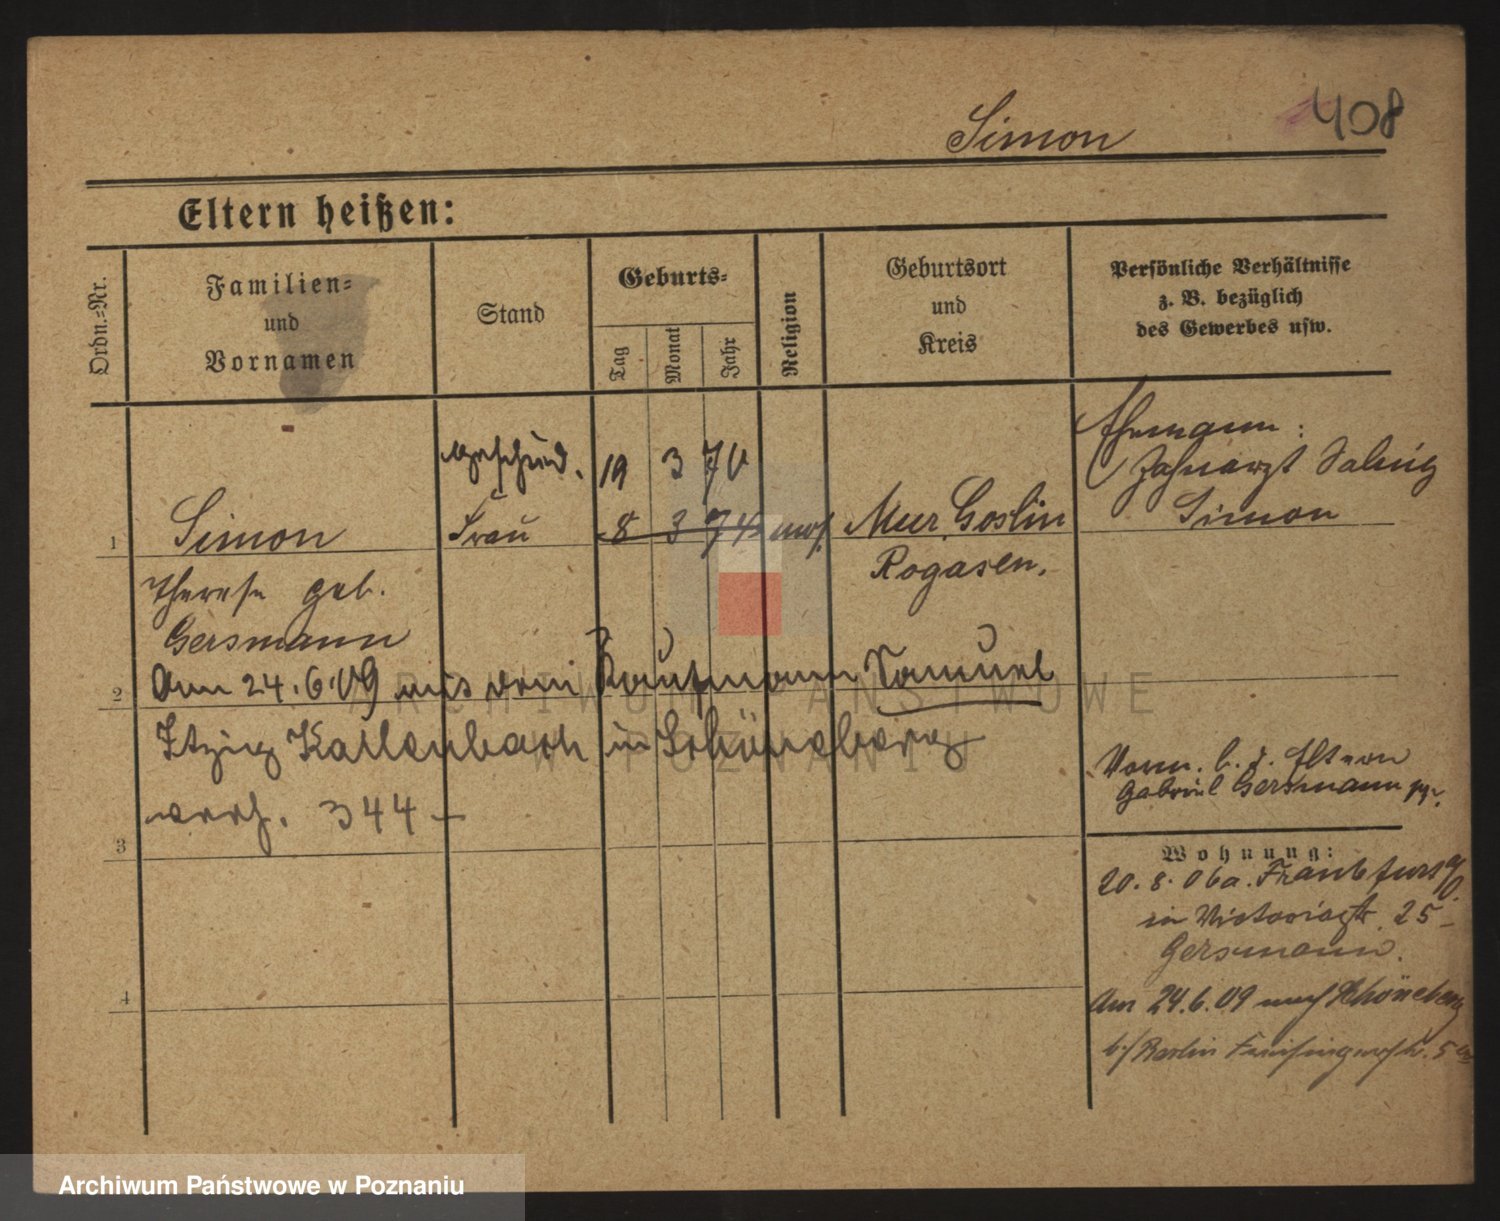 Simon
408
Eltern heißen:
Ordn.-Nr.
Familien-
und
Vornamen
Stand
Geburts-
Tag
Monat
Jahr
Religion
Geburtsort
und
Kreis
Persönliche Verhältnisse
z. B. bezüglich
des Gewerbes usw.
geschied. 19 3 70
Ehemann:
Zahnarzt
Simon
1 Simon Frau 8 3 74 mos. Mur. Goslin
Rogasen.
Therese geb.
Gersmann
2 Am 24.6.09 mit dem Kaufmann Samuel
Itzig Kallenbach in Schöneberg
verh. 344
Vorm. b. d. Eltern
Gabriel Gersmann
3
Wohnung:
20.8.06 a. Frankfurt
in Victoriastr. 25
Gersmann.
4
Am 24.6.09 nach Schöneberg
b/Berlin 5
ARCHIWUM PAŃSTWOWE
W POZNANIU
Archiwum Państwowe w Poznaniu